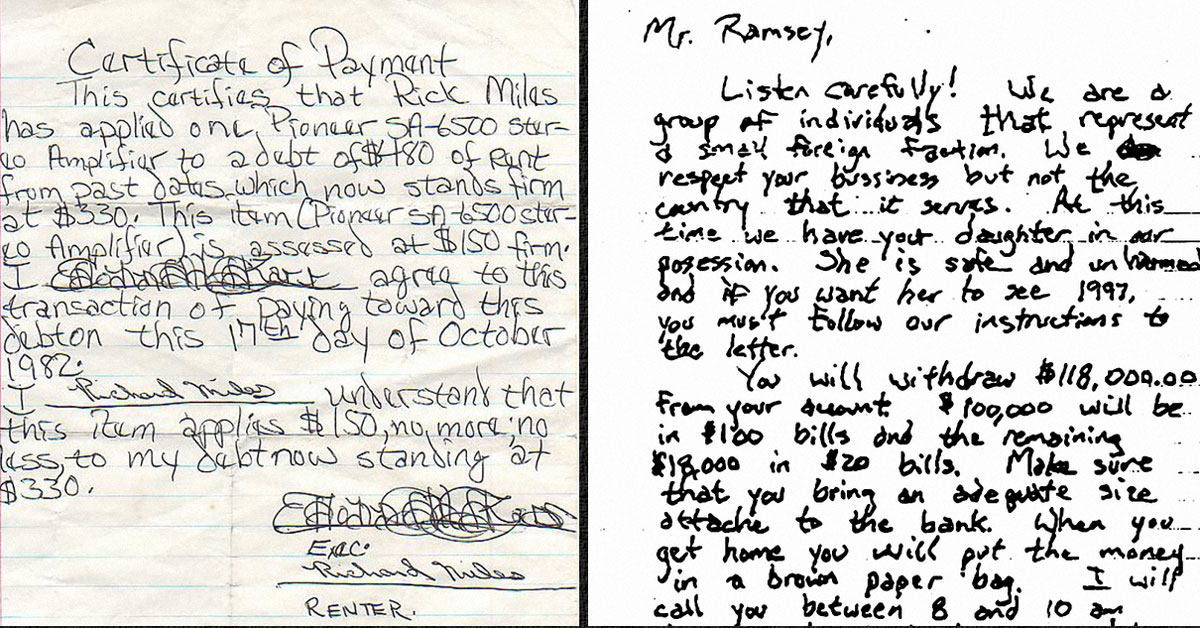 Certificate of Payment
This certifies that Rick Miles
has applied one, Pioneer SA-6500 ster-
eo Amplifier to a debt of $480 of rent
from past dates, which now stands firm
at $330. This item (Pioneer SA-6500 ster-
eo Amplifier) is assessed at $150 firm.
I agree to this
transaction of paying toward this
debt on this 17th day of October
1982.
I Richard Miles understand that
this item applies $150, no more, no
less, to my debt now standing at
$330.
Exec.
Richard Miles
RENTER.
Mr. Ramsey,
Listen carefully! We are a
group of individuals that represent
a small foreign faction. We
respect your bussiness but not the
country that it serves. At this
time we have your daughter in our
posession. She is safe and unharmed
and if you want her to see 1997,
you must follow our instructions to
the letter.
You will withdraw $118,000.00
from your account. $100,000 will be
in $100 bills and the remaining
$18,000 in $20 bills. Make sure
that you bring an adequate size
attache to the bank. When you
get home you will put the money
in a brown paper bag. I will
call you between 8 and 10 am